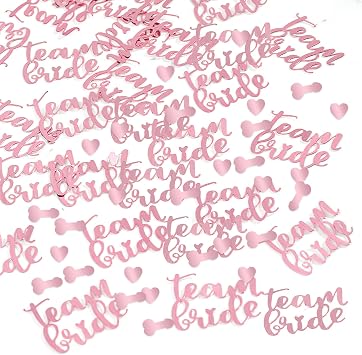 team
bride
team
bride
team
bride
team
bride
team
bride
team
bride
team
bride
team
bride
team
bride
team
bride
team
bride
team
bride
team
bride
team
bride
team
bride